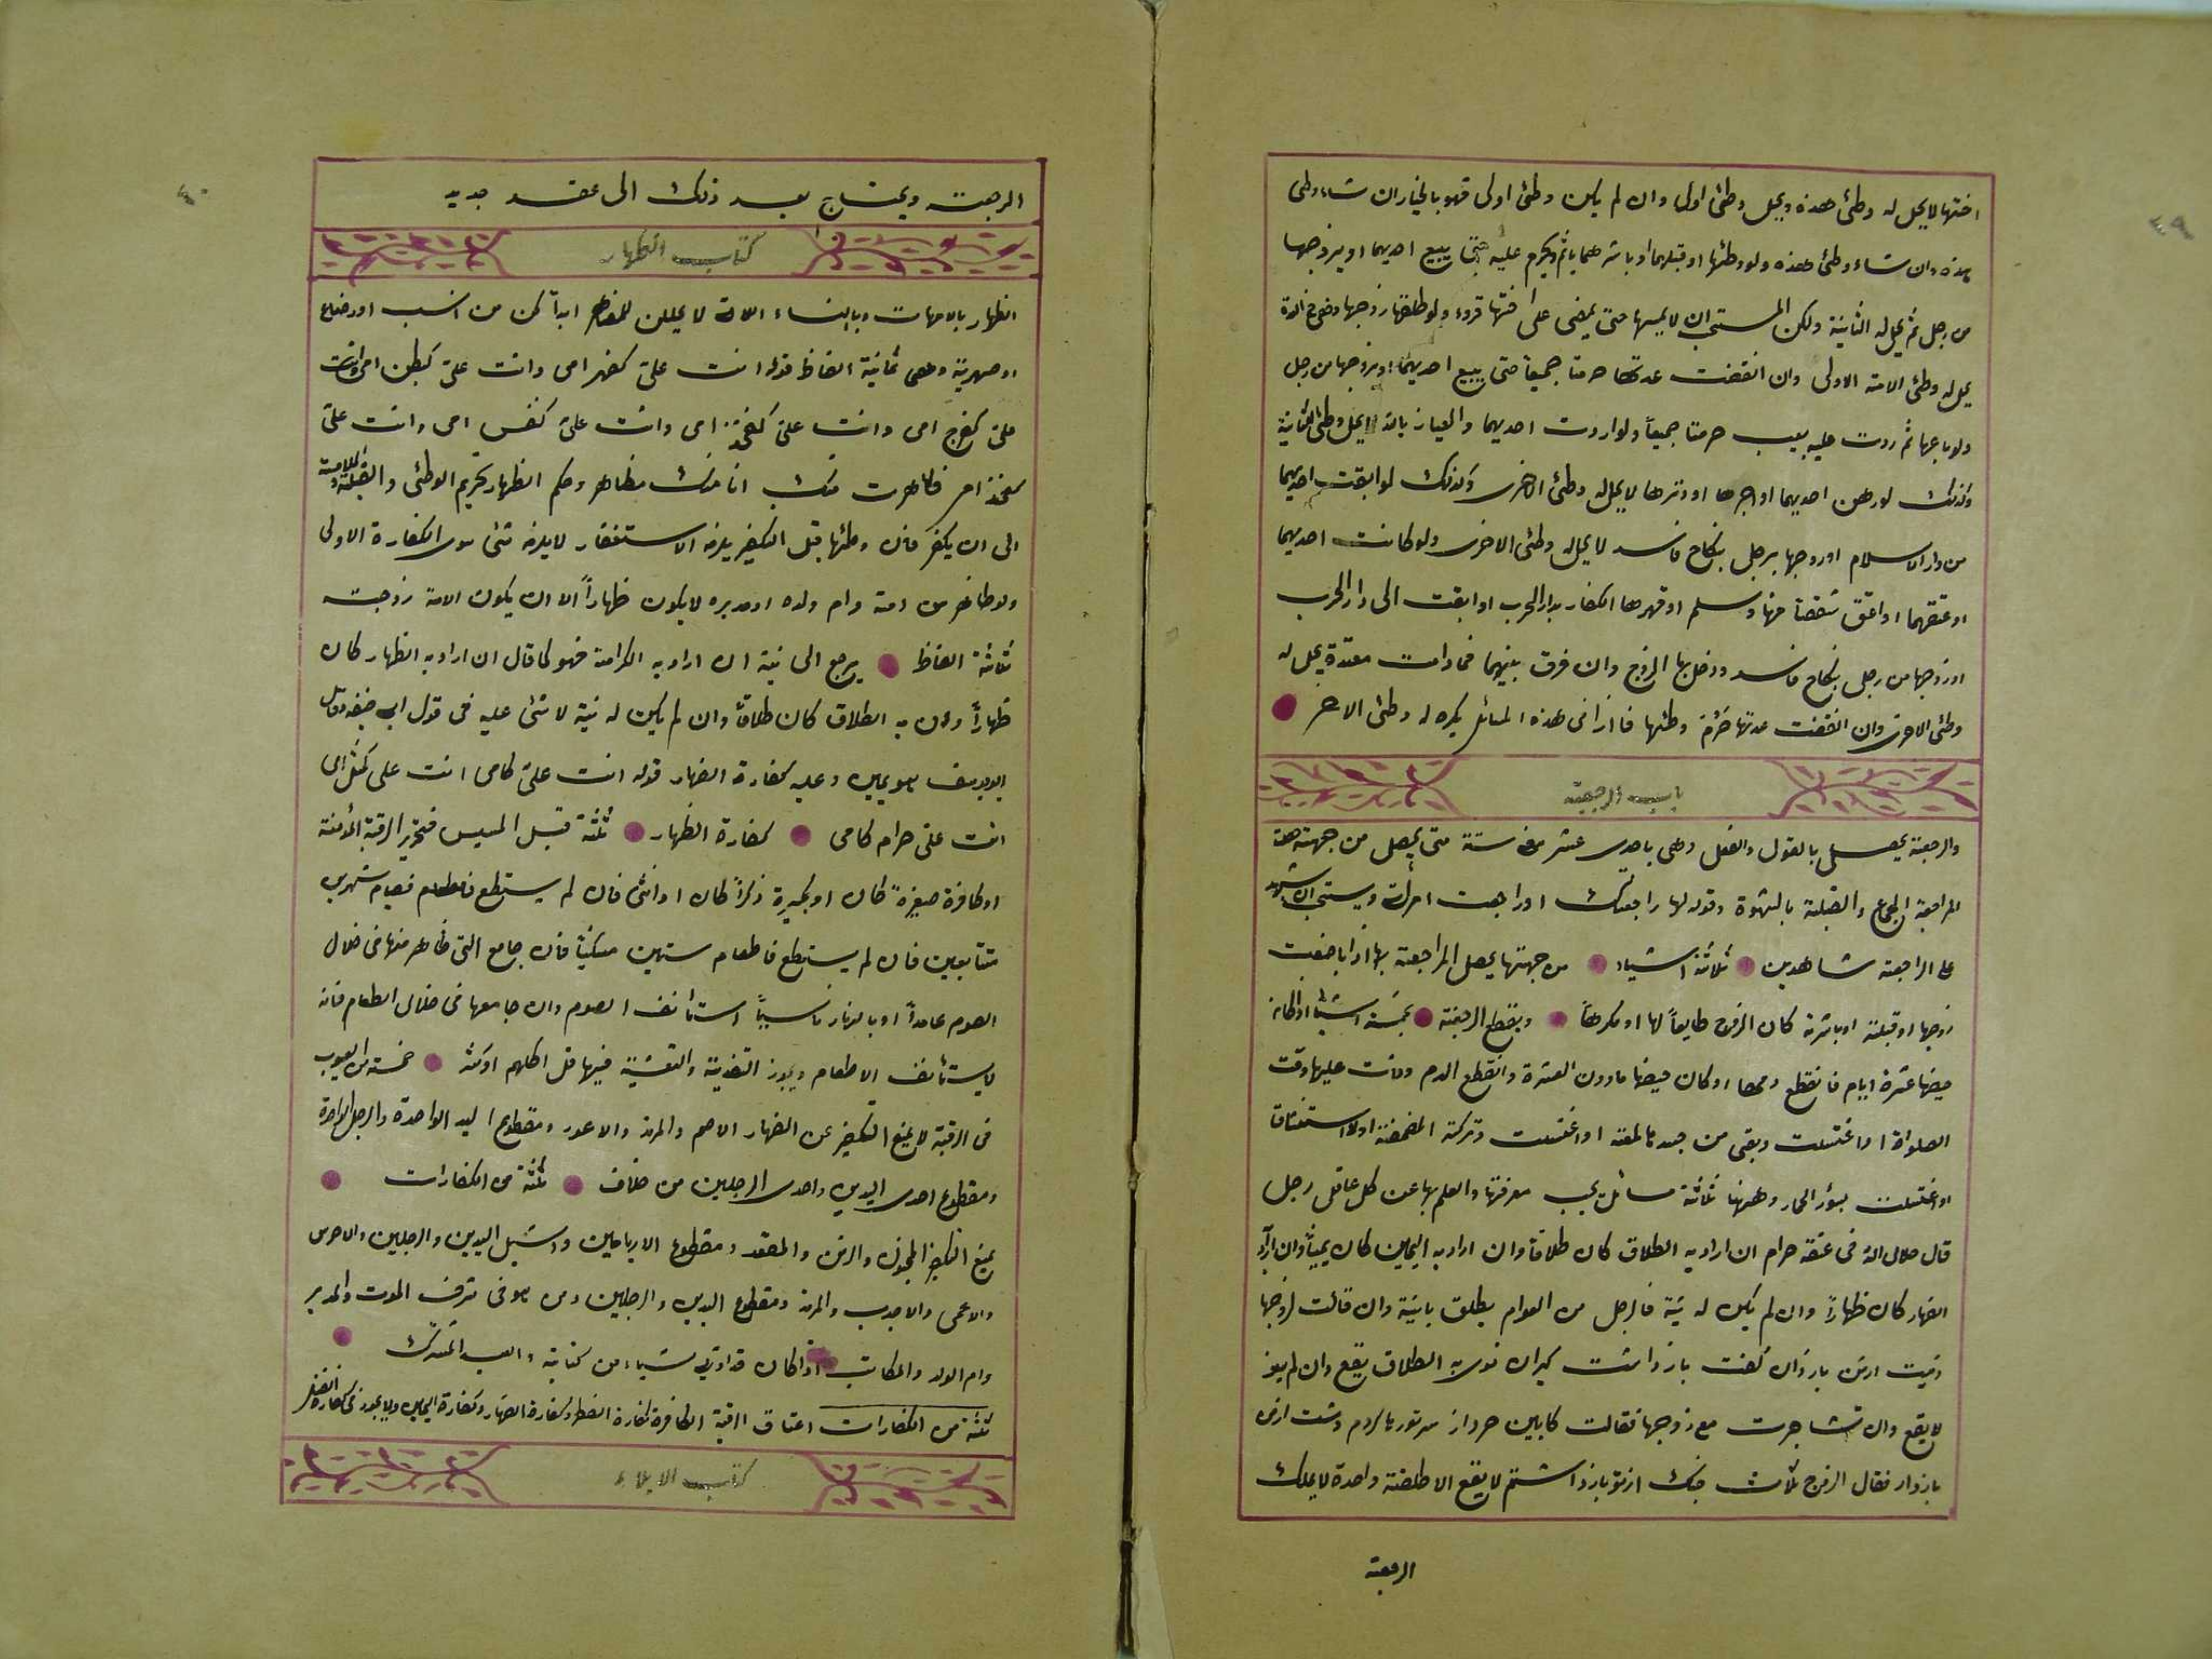 ٤٩
اختها لا يحل له وطئ هذه ويحل وطئ اولها وان لم يكن وطئ اولى فهو بالخيار ان شاء وطى
هذه وان شاء وطئ هذه ولو وطئها او قبلهما او باشرهما ياثم ويحرم عليه حتى يبيع احديهما او يزوجها
من رجل ثم يحل له الثانية ولكن المستحب ان لا يمسها حتى يمضى على اختها قروء ولو طلقها زوجها
يحل له وطئ الامة الاولى وان انقضت عدتها حرمتا جميعا حتى يبيع احديهما او يزوجها من رجل
ولو باعها ثم ردت عليه بعيب حرمتا جميعاً ولو ارددت احديهما والعياذ بالله لا يحل وطئ الثانية
وكذلك لو رهن احديهما او اجرها او دبرها لا يحل له وطئ الاخرى وكذلك لو ابقت احديهما
من دار الاسلام او زوجها برجل بنكاح فاسد لا يحل له وطئ الاخرى ولو كانت احديهما
او عتقهما او اعتق شقصاً منها وسلم او قهرها الكفار بدار الحرب او ابقت الى دار الحرب
او زوجها من رجل بنكاح فاسد ودخل بها الزوج وان فرق بينهما فما دامت معتدة يحل له
وطئ الاخرى وان انقضت عدتها حرم وطئها فاذا فى هذه المسائل يكره له وطئ الاخر
باب الرجعة
والرجعة يحصل بالقول والفعل وهى باحدى عشر ستة متى يحصل من جهته
المراجعة الجماع والقبلة بالشهوة وقوله لها راجعتك او راجعت امرأتى ويستحب ان يشهد
على الراجعة شاهدين ثلاثة اشياء من جهتها يحصل المراجعة بها اذا باضعت
زوجها او قبلته او باشرته كان الزوج طايعاً لها او مكرهاً وينقطع الرجعة بخمسة اشياء اذا كان
حيضها عشرة ايام فانقطع دمها او كان حيضها ما دون العشرة وانقطع الدم وفات عليها وقت
الصلواة او اغتسلت وبقى من جسدها لمعة او اغتسلت وتركت المضمضة او الاستنشاق
او اغتسلت بسؤر الحمار وههنا ثلاثة مسائل يجب معرفتها والعلم بها عن كل عاقل رجل
قال حلال الله فى عنقه حرام ان اراد به الطلاق كان طلاقاً وان اراد به اليمين كان يميناً وان اراد
الظهار كان ظهاراً وان لم يكن له نية فالرجل من العوام يطلق باينة وان قالت لزوجها
ان نوى به الطلاق يقع وان لم ينو
لا يقع وان تشاجرت مع زوجها فقالت كابين
بازدار فقال الزوج ثلاث جنك از تو بازداشتم لا يقع الا طلقة واحدة لا يملك
الرجعة
٤٠
الرجعت ويحتاج بعد ذلك الى عقد جديد
كتاب الظهار
الظهار بالامهات وبالنساء اللاتى لا يحللن للمظاهر ابداً كن من نسب او رضاع
او صهرية وهى ثمانية الفاظ قوله انت علىّ كظهر امى وانت علىّ كبطن امى وانت
علىّ كفرج امى وانت علىّ كفخذ امى وانت علىّ كنفس امى وانت علىّ
ظاهرت منك انا منك مظاهر وحكم الظهار تحريم الوطئ والقبلة والملامسة
الى ان يكفر فان وطئها قبل التكفير يلزمه الاستغفار لا يلزمه شئ سوى الكفارة الاولى
ولو ظاهر من امته وام ولده او مدبره لا يكون ظهاراً الا ان يكون الامة زوجته
ثلثة الفاظ يرجع الى نية ان اراد به الكرامة فهو كما قال ان اراد به الظهار كان
ظهاراً وان به الطلاق كان طلاقاً وان لم يكن له نية لا شئ عليه فى قول ابى حنيفه وقال
ابو يوسف هو يمين وعليه كفارة الظهار قوله انت علىّ كامى انت على كمثل امى
انت علىّ حرام كامى كفارة الظهار ثلثة قبل المسيس فتحرير الرقبة المؤمنة
او كافرة صغيرة كان او كبيرة ذكراً كان او انثى فان لم يستطع فصيام شهرين
متتابعين فان لم يستطع فاطعام ستين مسكيناً فان جامع التى ظاهر منها فى خلال
الصوم عامداً او بالنهار ناسياً استأنف الصوم وان جامعها فى خلال الطعام فانه
لا يستأنف الاطعام ويجوز التغذية والتعشية فيها قل اكلهم او كثر خمسة من العيوب
فى الرقبة لا يمنع التكفير عن الظهار الاصم والمرتد والاعور ومقطوع اليد الواحدة والرجل الواحدة
ومقطوع احدى اليدين واحدى الرجلين من خلاف ثلثة من الكفارات
يمنع التكفير المجنون والزمن والمقعد ومقطوع الابهامين واشل اليدين والرجلين والاخرس
والاعمى والاجدب والمرتد ومقطوع اليدين والرجلين ومن هو فى نزف الموت والمدبر
وام الولد والمكاتب اذا كان قد ادى شيئاء من كتابة والعبد المشترك
ثلثة من الكفارات اعتاق الرقبة الكافرة كفارة الفطر وكفارة الظهار وكفارة اليمين ولا يجوز فى كفارة القتل
كتاب الايلاء